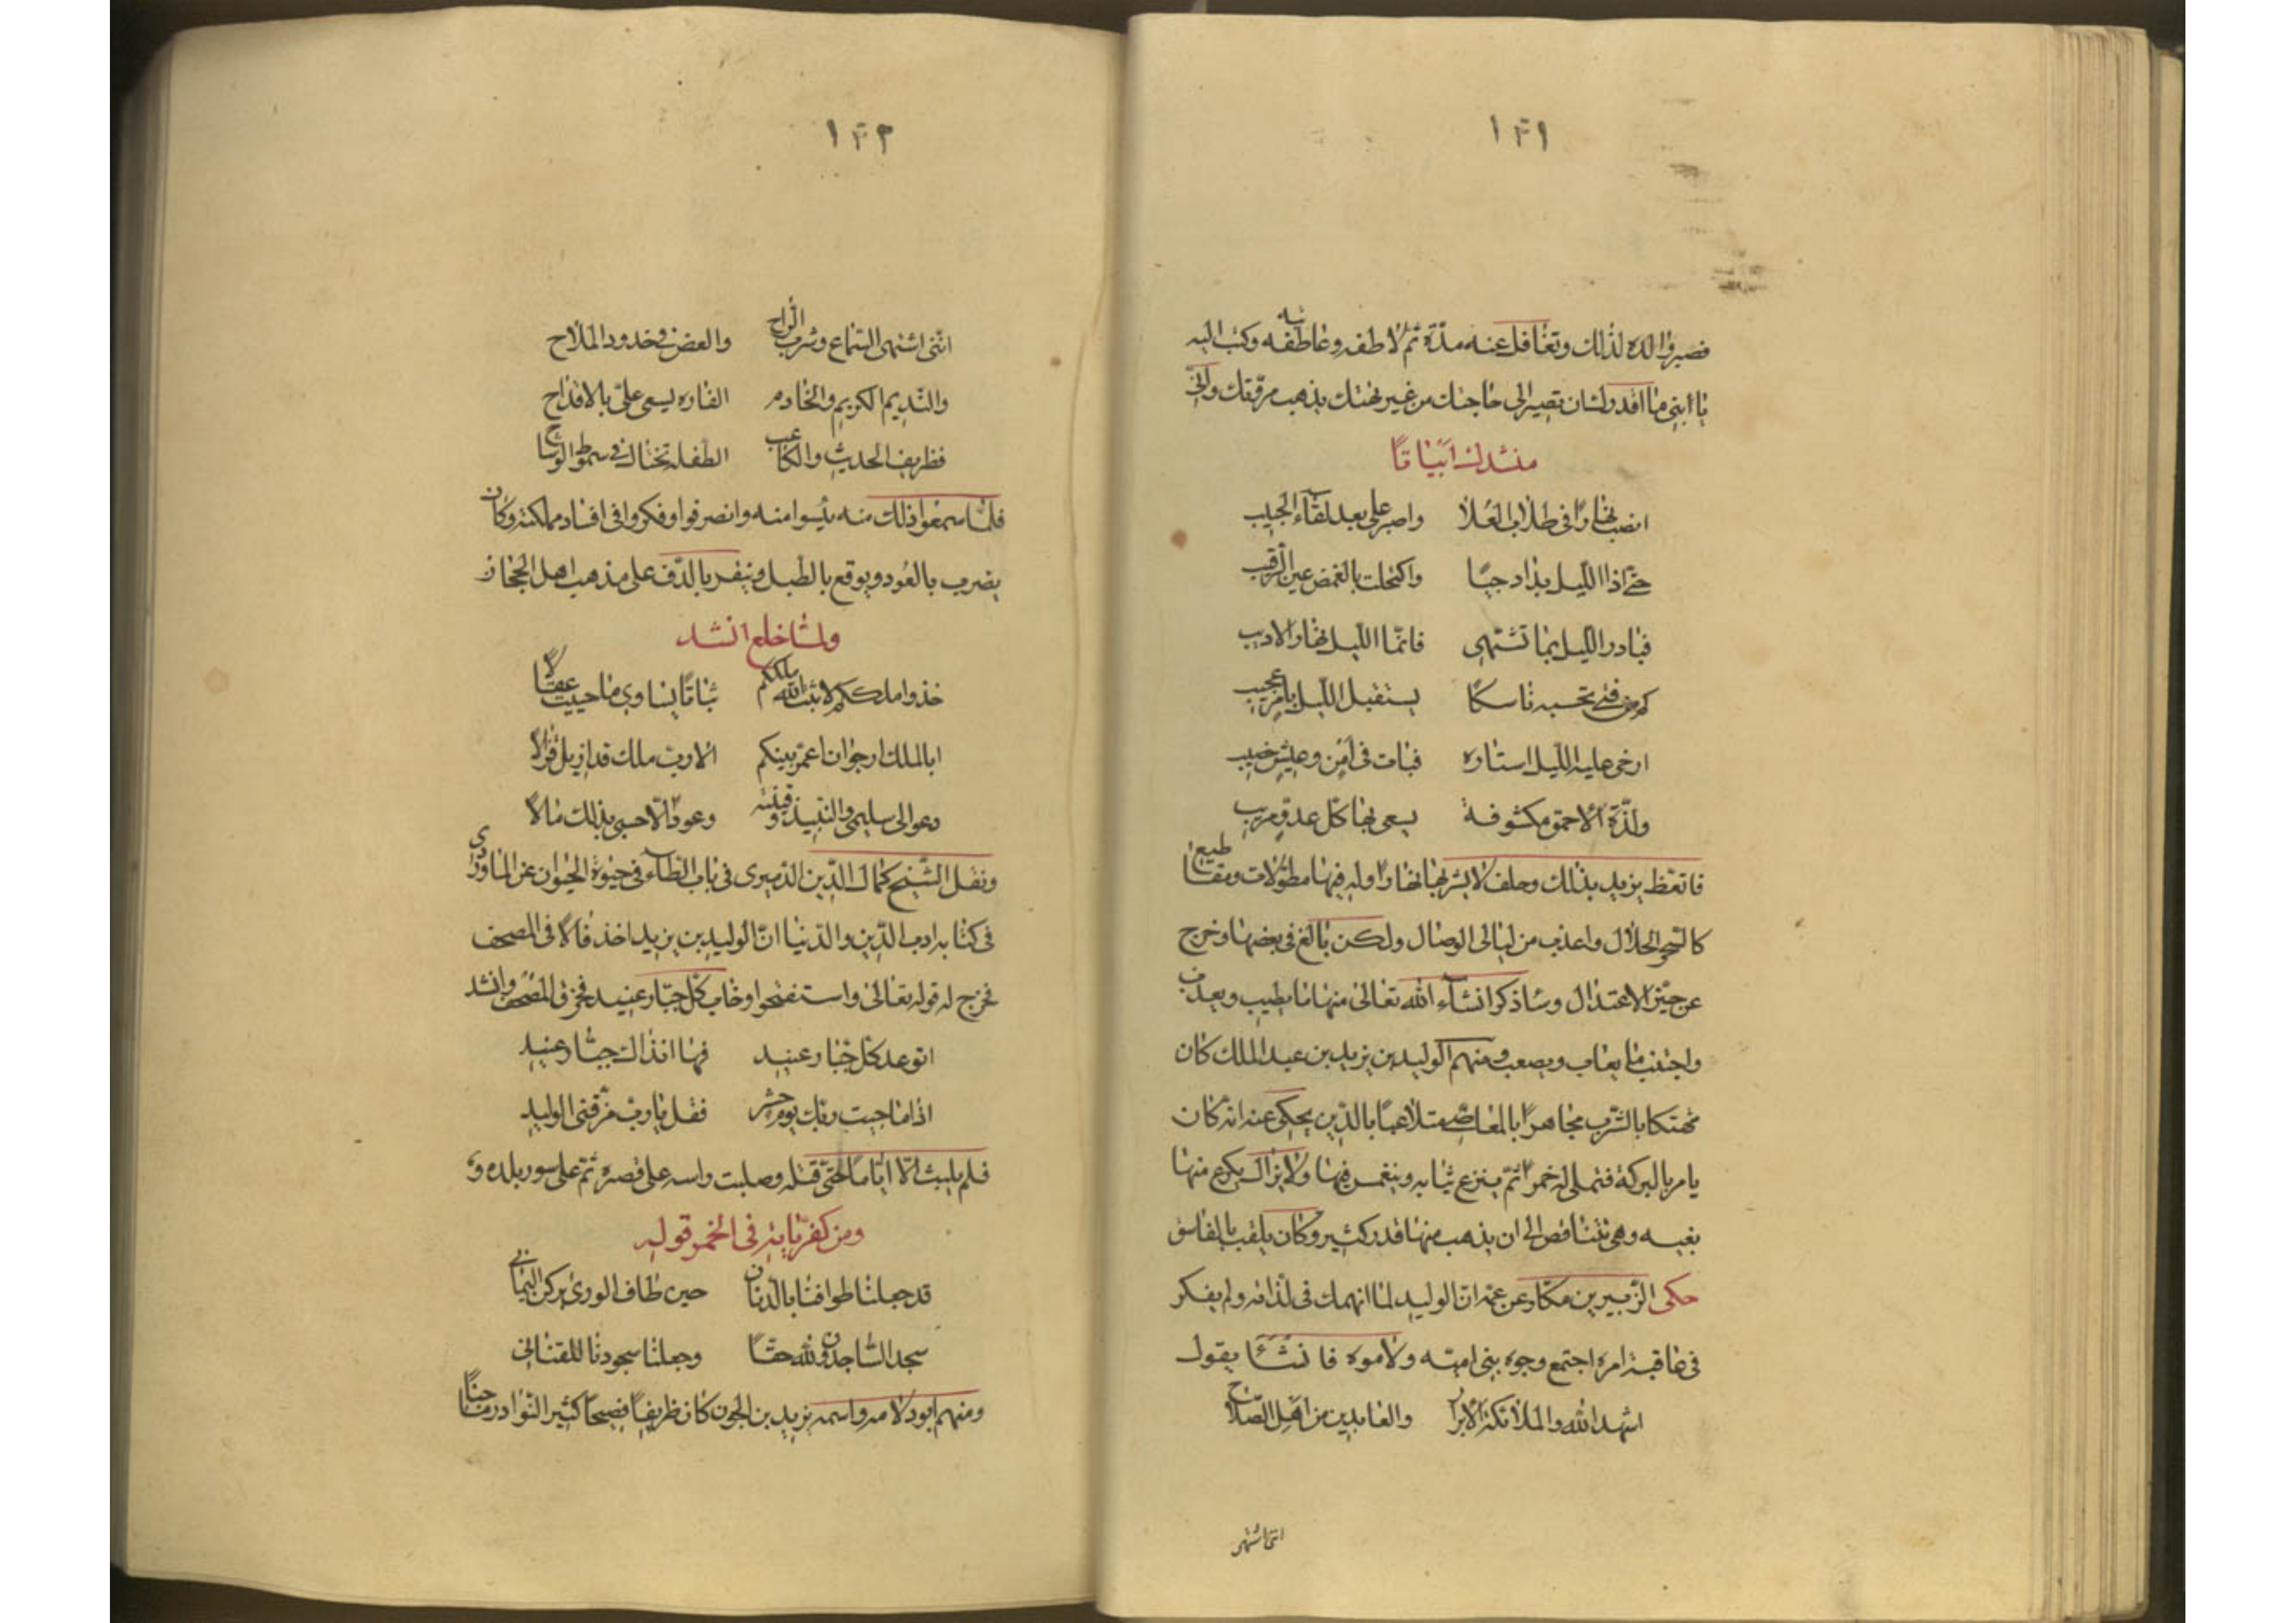 ١٣١
فصبر والده لذلك وتغافل عنه مدّة ثم لاطفه وعاطفه وكتب اليه
يا ابنى ما اقدرك ان تصير الى حاجتك من غير تهتك يذهب مروّتك وانّى
منشدك ابياتا
انصب نهارا فى طلاب العلا واصبر على بعد لقاء الحبيب
حتى اذا الليل بدا دجيا واكتحلت بالغمض عين الرقيب
فبادر الليل بما تشتهى فانّما الليل نهار الاديب
كم من فتى تحسبه ناسكا يستقبل الليل بامر عجيب
ارخى عليه الليل استاره فبات فى امن وعيش خصيب
ولذّة الاحمق مكشوفة يسعى بها كل عدو مريب
فاتعظ يزيد بذلك وحلف لا يشربها نهارا وله فيها مطوّلات ومقاطيع
كالسحر الحلال واعذب من ليالى الوصال ولكن بالغ فى بعضها وخرج
عن حيّز الاعتدال وساذكر انشآء الله تعالى منها ما يطيب ويعذب
واجتنب ما يعاب ويصعب ومنهم الوليد بن يزيد بن عبد الملك كان
مهتكا بالشرب مجاهرا بالمعاصى متلاعبا بالدّين يحكى عنه انه كان
يامر بالبركة فتملى له خمرا ثم ينزع ثيابه وينغمس فيها ولا يزال يكرع منها
بفيه وهى تتناقص الى ان يذهب منها قدر كثير وكان يلقب بالفاسق
حكى الزّبير بن مكار عن عمّه انّ الوليد لما انهمك فى لذاته ولم يفكر
فى عاقبة امره اجتمع وجوه بنى اميّة ولاموه فانشأ يقول
اشهد الله والملائكة الابرار والعابدين من اهل الصّلاح
انّنى اشتهى
١٣٢
انّنى اشتهى السّماع وشرب الرّاح والعض فى خدود الملاح
والنّديم الكريم والخادم الفاره يسعى علىّ بالاقداح
فظريف الحديث والكاعب الطفلة تختال فى سموط الوشاح
فلمّا سمعوا ذلك منه يئسوا منه وانصرفوا وفكروا فى افساد مملكته وكان
يضرب بالعود ويوقع بالطبل وينقر بالدّف على مذهب اهل الحجاز
ولمّا خلع انشد
خذوا ملككم لا ثبت الله ملككم ثباتا يساوى ما حييت عقالا
ابالملك ارجو ان اعمّر بينكم الا ربّ ملك قد ازيل فزالا
دعوا لى سليمى والنّبيذ وقينة وعودا الا حسبى بذلك مالا
ونقل الشّيخ كمال الدّين الدّميرى فى باب الطآء فى حيوة الحيوان عن الماوردى
فى كتابه ادب الدّين والدّنيا انّ الوليد بن يزيد اخذ فالا فى المصحف
فخرج له قوله تعالى واستفتحوا وخاب كلّ جبّار عنيد فخرق المصحف وانشد
اتوعد كل جبّار عنيد فها انا ذاك جبّار عنيد
اذا ما جيت ربّك يوم حشر فقل يا ربّ مزّقنى الوليد
فلم يلبث الّا ايّاما حتّى قتله وصلبت راسه على قصره ثمّ على سور بلده و
ومن كفريّاته فى الخمر قوله
قد جعلنا طوافنا بالدّنان حين طاف الورى بركن اليمانى
سجد السّاجدون لله حقّا وجعلنا سجودنا للقنانى
ومنهم ابو دلامه واسمه يزيد بن الجون كان ظريفا فصيحا كثير النّوادر ماجنا